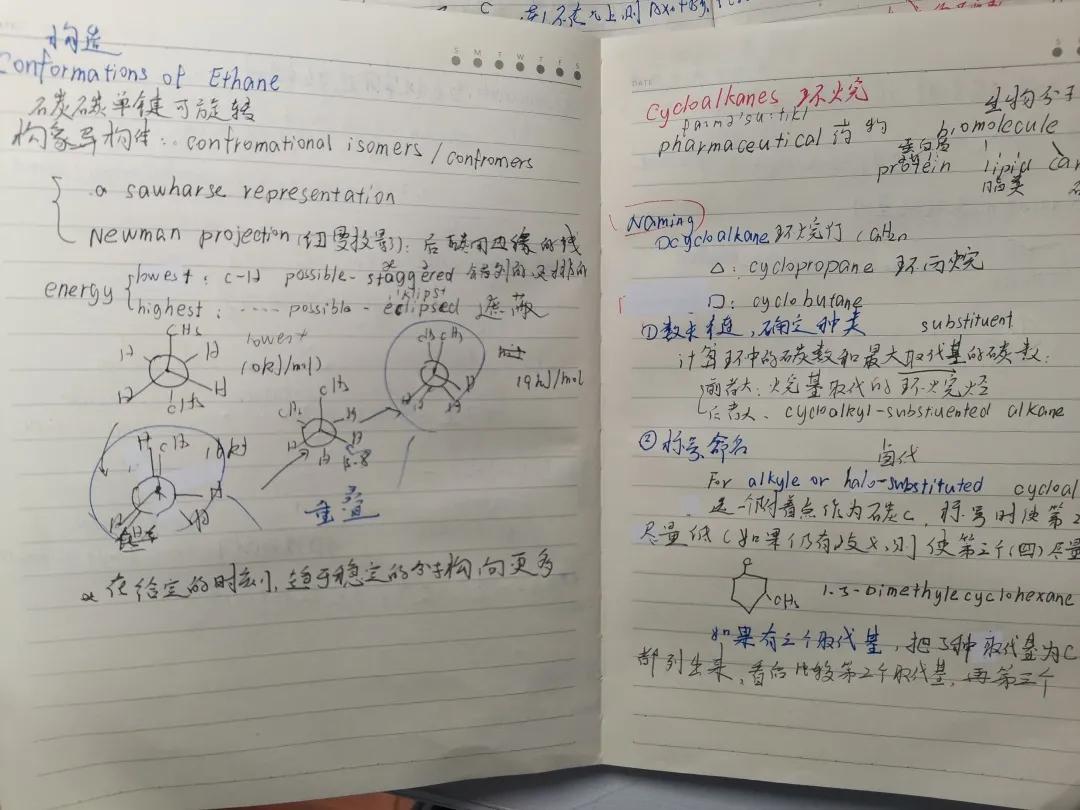 构造
Conformations of Ethane
石炭石炭单键可旋转
构象异构体: confromational isomers / confromers
a sawharse representation
Newman projection (纽曼投影): 后碳用边缘的线
energy
lowest: C-H possible - staggered 错列的
highest: ···· possible - eclipsed 遮蔽
CH3 lowest
H H (0kJ/mol)
H H
CH3
CH3
H H
CH3
19kJ/mol
CH3
CH3 H
H
H
H CH3
H
重叠
* 在给定的时刻, 趋于稳定的分子构向更多
DATE
Cycloalkanes 环烷
生物分子
pharmaceutical 药物
biomolecule
蛋白质
protein lipid car
脂类
Naming
cycloalkane 环烷烃 CnH2n
△: cyclopropane 环丙烷
□: cyclobutane
① 数末链, 确定种类 substituent
计算环中的石炭数和最大取代基的碳数:
前者大: 烷基取代的环烷烃
后者大. cycloalkyl-substuented alkane
② 标号命名 卤代
For alkyle or halo-substituted cycloal
选一个附着点作为石炭C, 标号时使第2
尽量低 (如果仍有歧义, 则使第三个(四)尽量
CH3 1.3-Dimethylecyclohexane
如果有三个取代基, 把3种取代基为C
都列出来, 看后比较第2个取代基, 再第三个